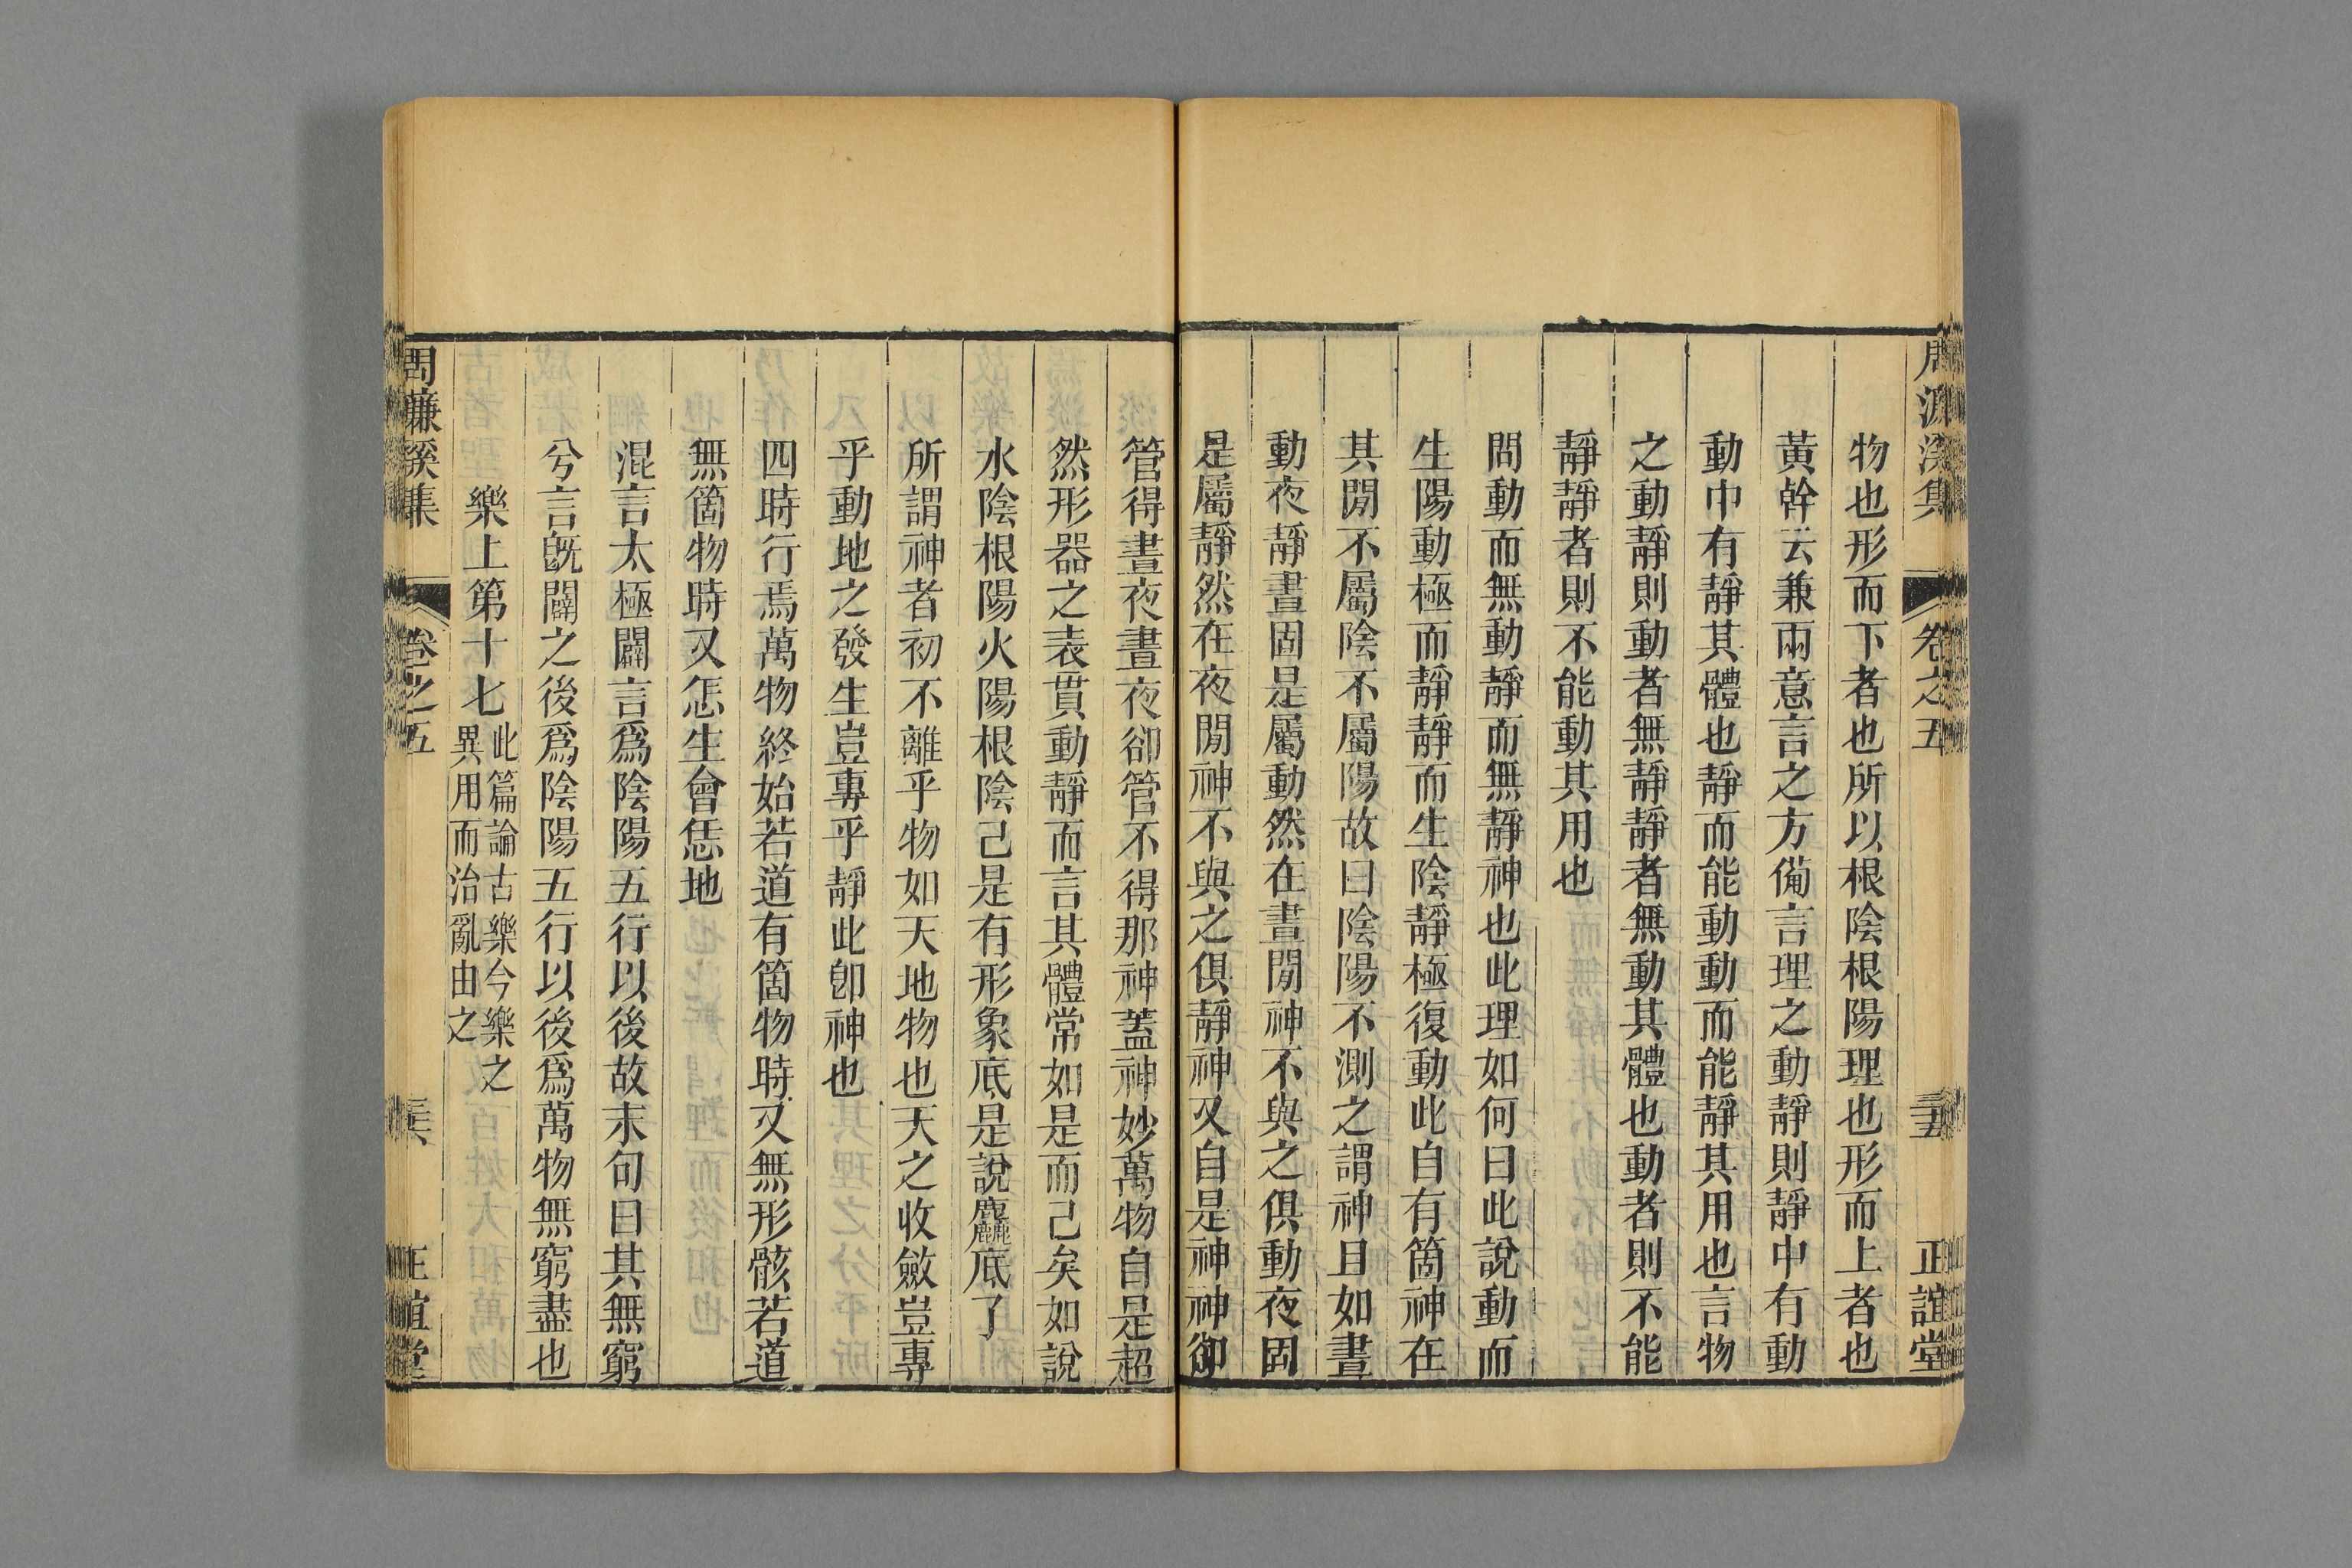 周濂溪集 卷之五 三五 正誼堂
物也形而下者也所以根陰根陽理也形而上者也
黃幹云兼兩意言之方備言理之動靜則靜中有動
動中有靜其體也靜而能動動而能靜其用也言物
之動靜則動者無靜靜者無動其體也動者則不能
靜靜者則不能動其用也
問動而無動靜而無靜神也此理如何曰此說動而
生陽動極而靜靜而生陰靜極復動此自有箇神在
其閒不屬陰不屬陽故曰陰陽不測之謂神且如晝
動夜靜晝固是屬動然在晝閒神不與之俱動夜固
是屬靜然在夜閒神不與之俱靜神又自是神神卻
管得晝夜晝夜卻管不得那神蓋神妙萬物自是超
然形器之表貫動靜而言其體常如是而已矣如說
水陰根陽火陽根陰己是有形象底是說麤底了
所謂神者初不離乎物如天地物也天之收斂豈專
乎動地之發生豈專乎靜此卽神也
四時行焉萬物終始若道有箇物時又無形骸若道
無箇物時又怎生會恁地
混言太極闢言爲陰陽五行以後故末句曰其無窮
兮言旣闢之後爲陰陽五行以後爲萬物無窮盡也
樂上第十七 此篇論古樂今樂之
異用而治亂由之
周濂溪集 卷之五 三六 正誼堂